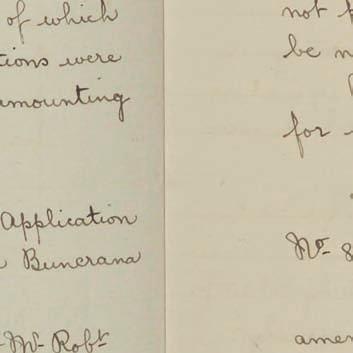 of which
tions were
amounting
Application
Buncrana
Mr. Robt
not
be
for
Mr.